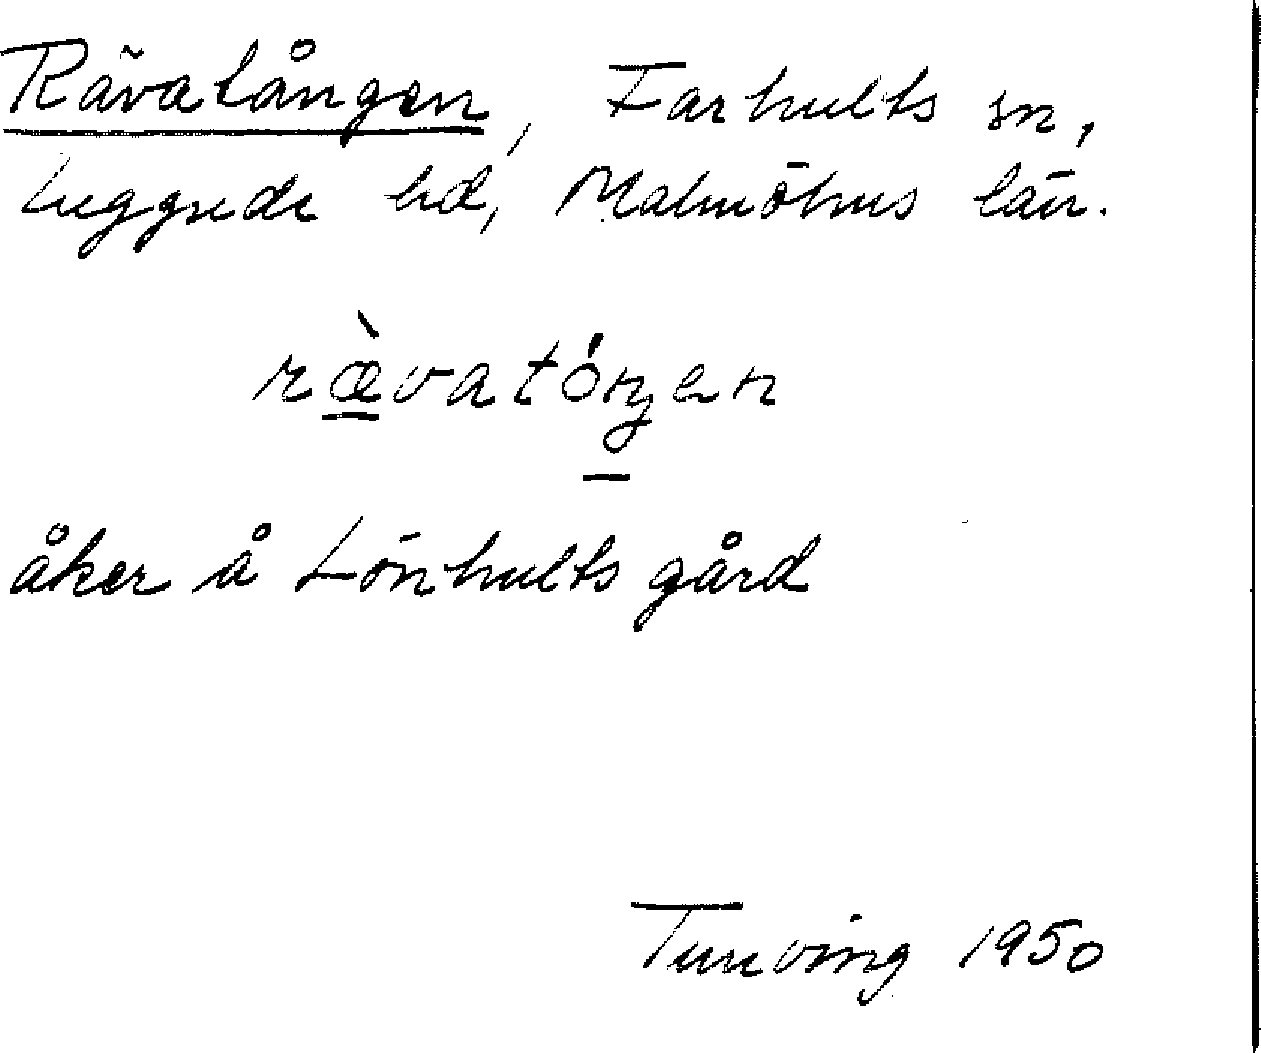 Rävatången, Farhults sn,
Luggude hd, Malmöhus län.
ræ̀vatóŋen
åker å Lönhults gård
Tunving 1950